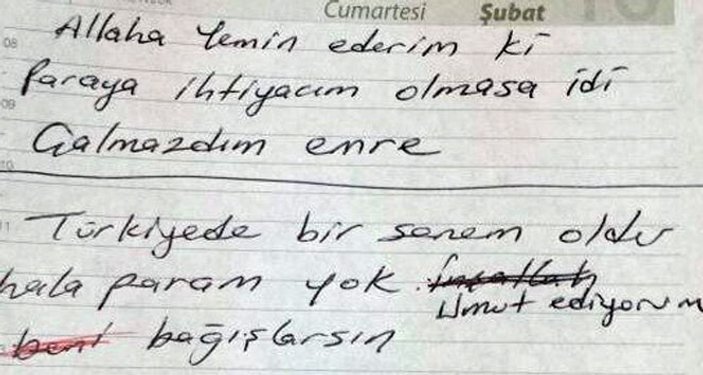 Cumartesi Şubat
08 Allaha Yemin ederim ki
Paraya ihtiyacım olmasa idi
09
Çalmazdım enre
10
11 Türkiyede bir senem oldu
hala param yok. İnşallah
Umut ediyorum
beni bağışlarsın